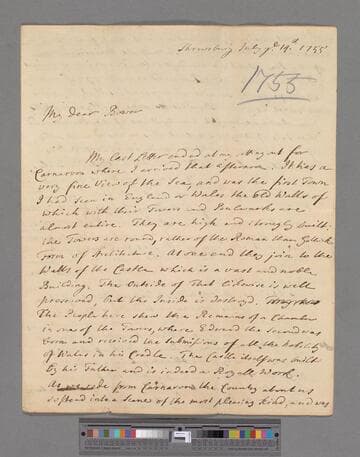 Shrewsbury July ye. 14th 1755
1755
My dear Bower
My last Letter ended at my
out for
Carnarvon where I arrived that afternoon. It has a
very fine View of the Sea, and was the first Town
I had seen in England or Wales the Old Walls of
which with their Towers and Bulwarks are
almost entire. They are high and strongly built.
the Towers are round, rather of the Roman than Gothick
form of Architecture. At one end they join to the
Walls of the Castle which is a vast and noble
Building. The Outside of that likewise is well
preserved, but the Inside is destroyed.
The People here shew the Remains of a Chamber
in one of the Towers, where Edward the Second was
born and received the Submissions of all the Nobility
of Wales in his Cradle. The Castle itself was built
by his Father and is indeed a Royall Work.
As we rode from Carnarvon the Country about us
softend into a Scene of the most pleasing kind, and was